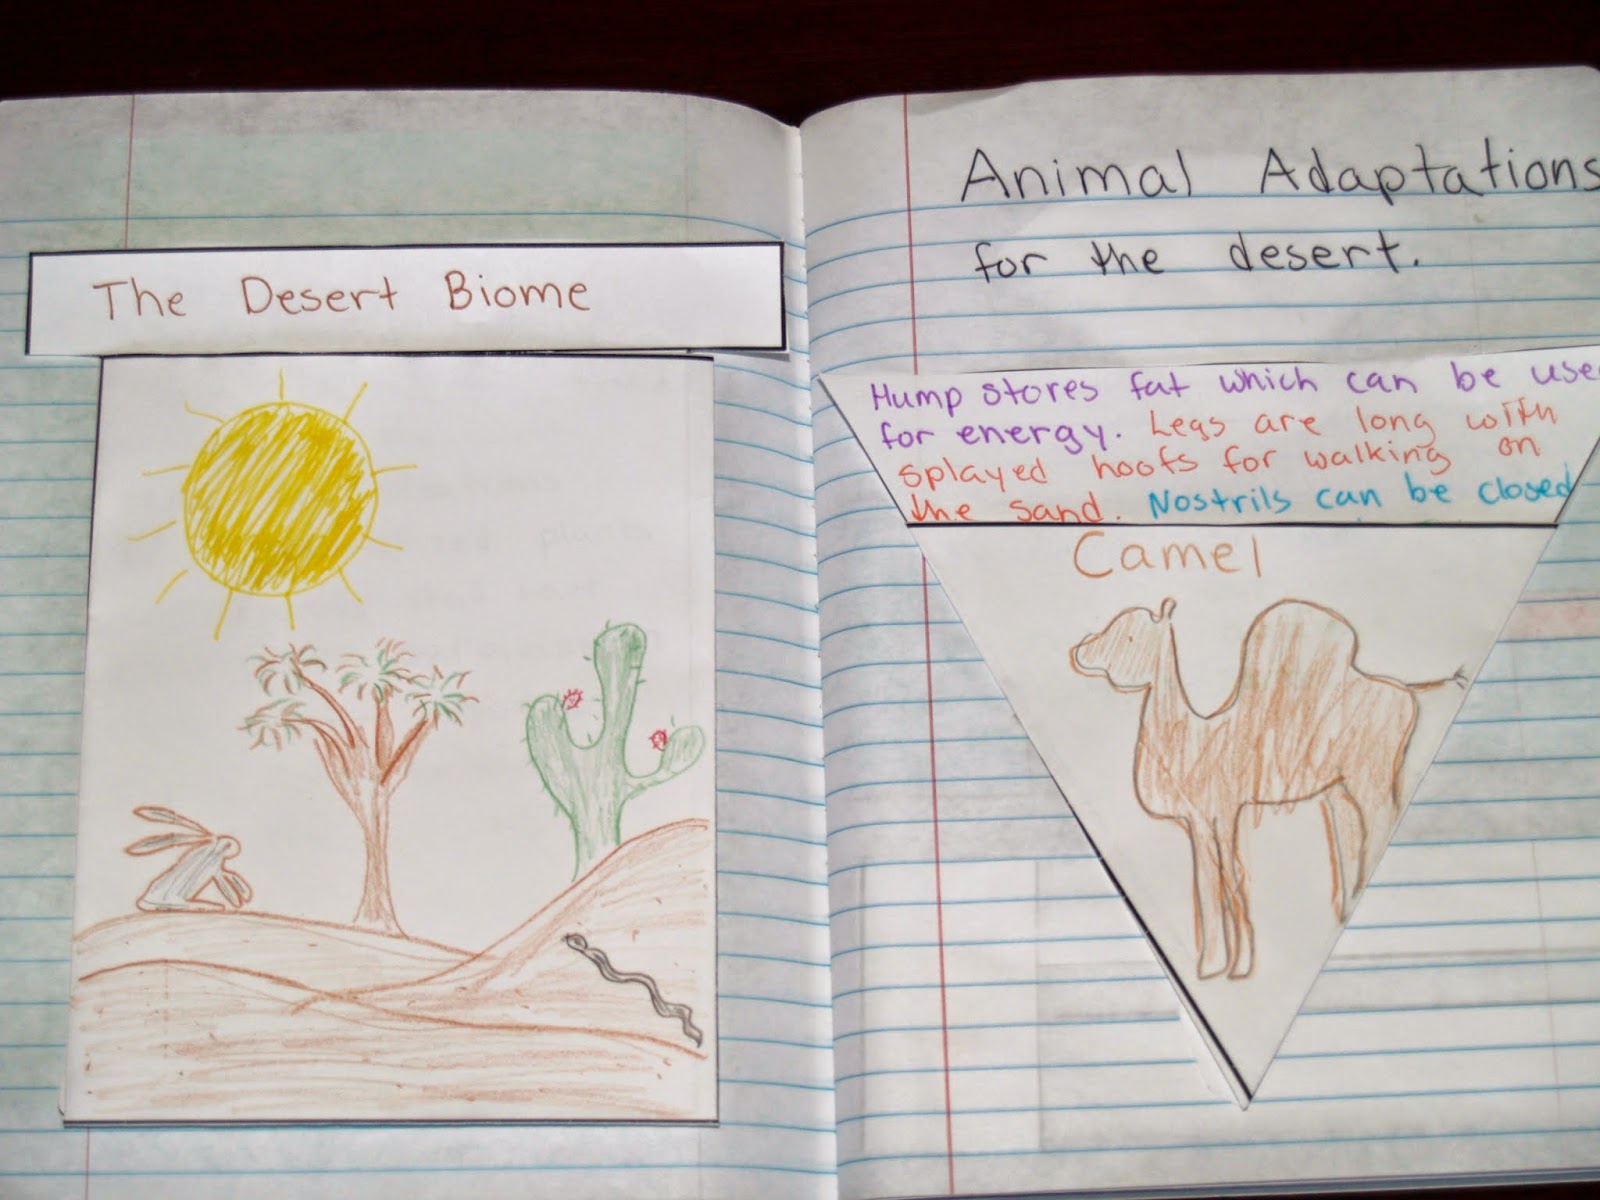 The Desert Biome
Animal Adaptations
for the desert.
Hump stores fat which can be use
for energy. Legs are long with
splayed hoofs for walking on
the sand. Nostrils can be closed
Camel